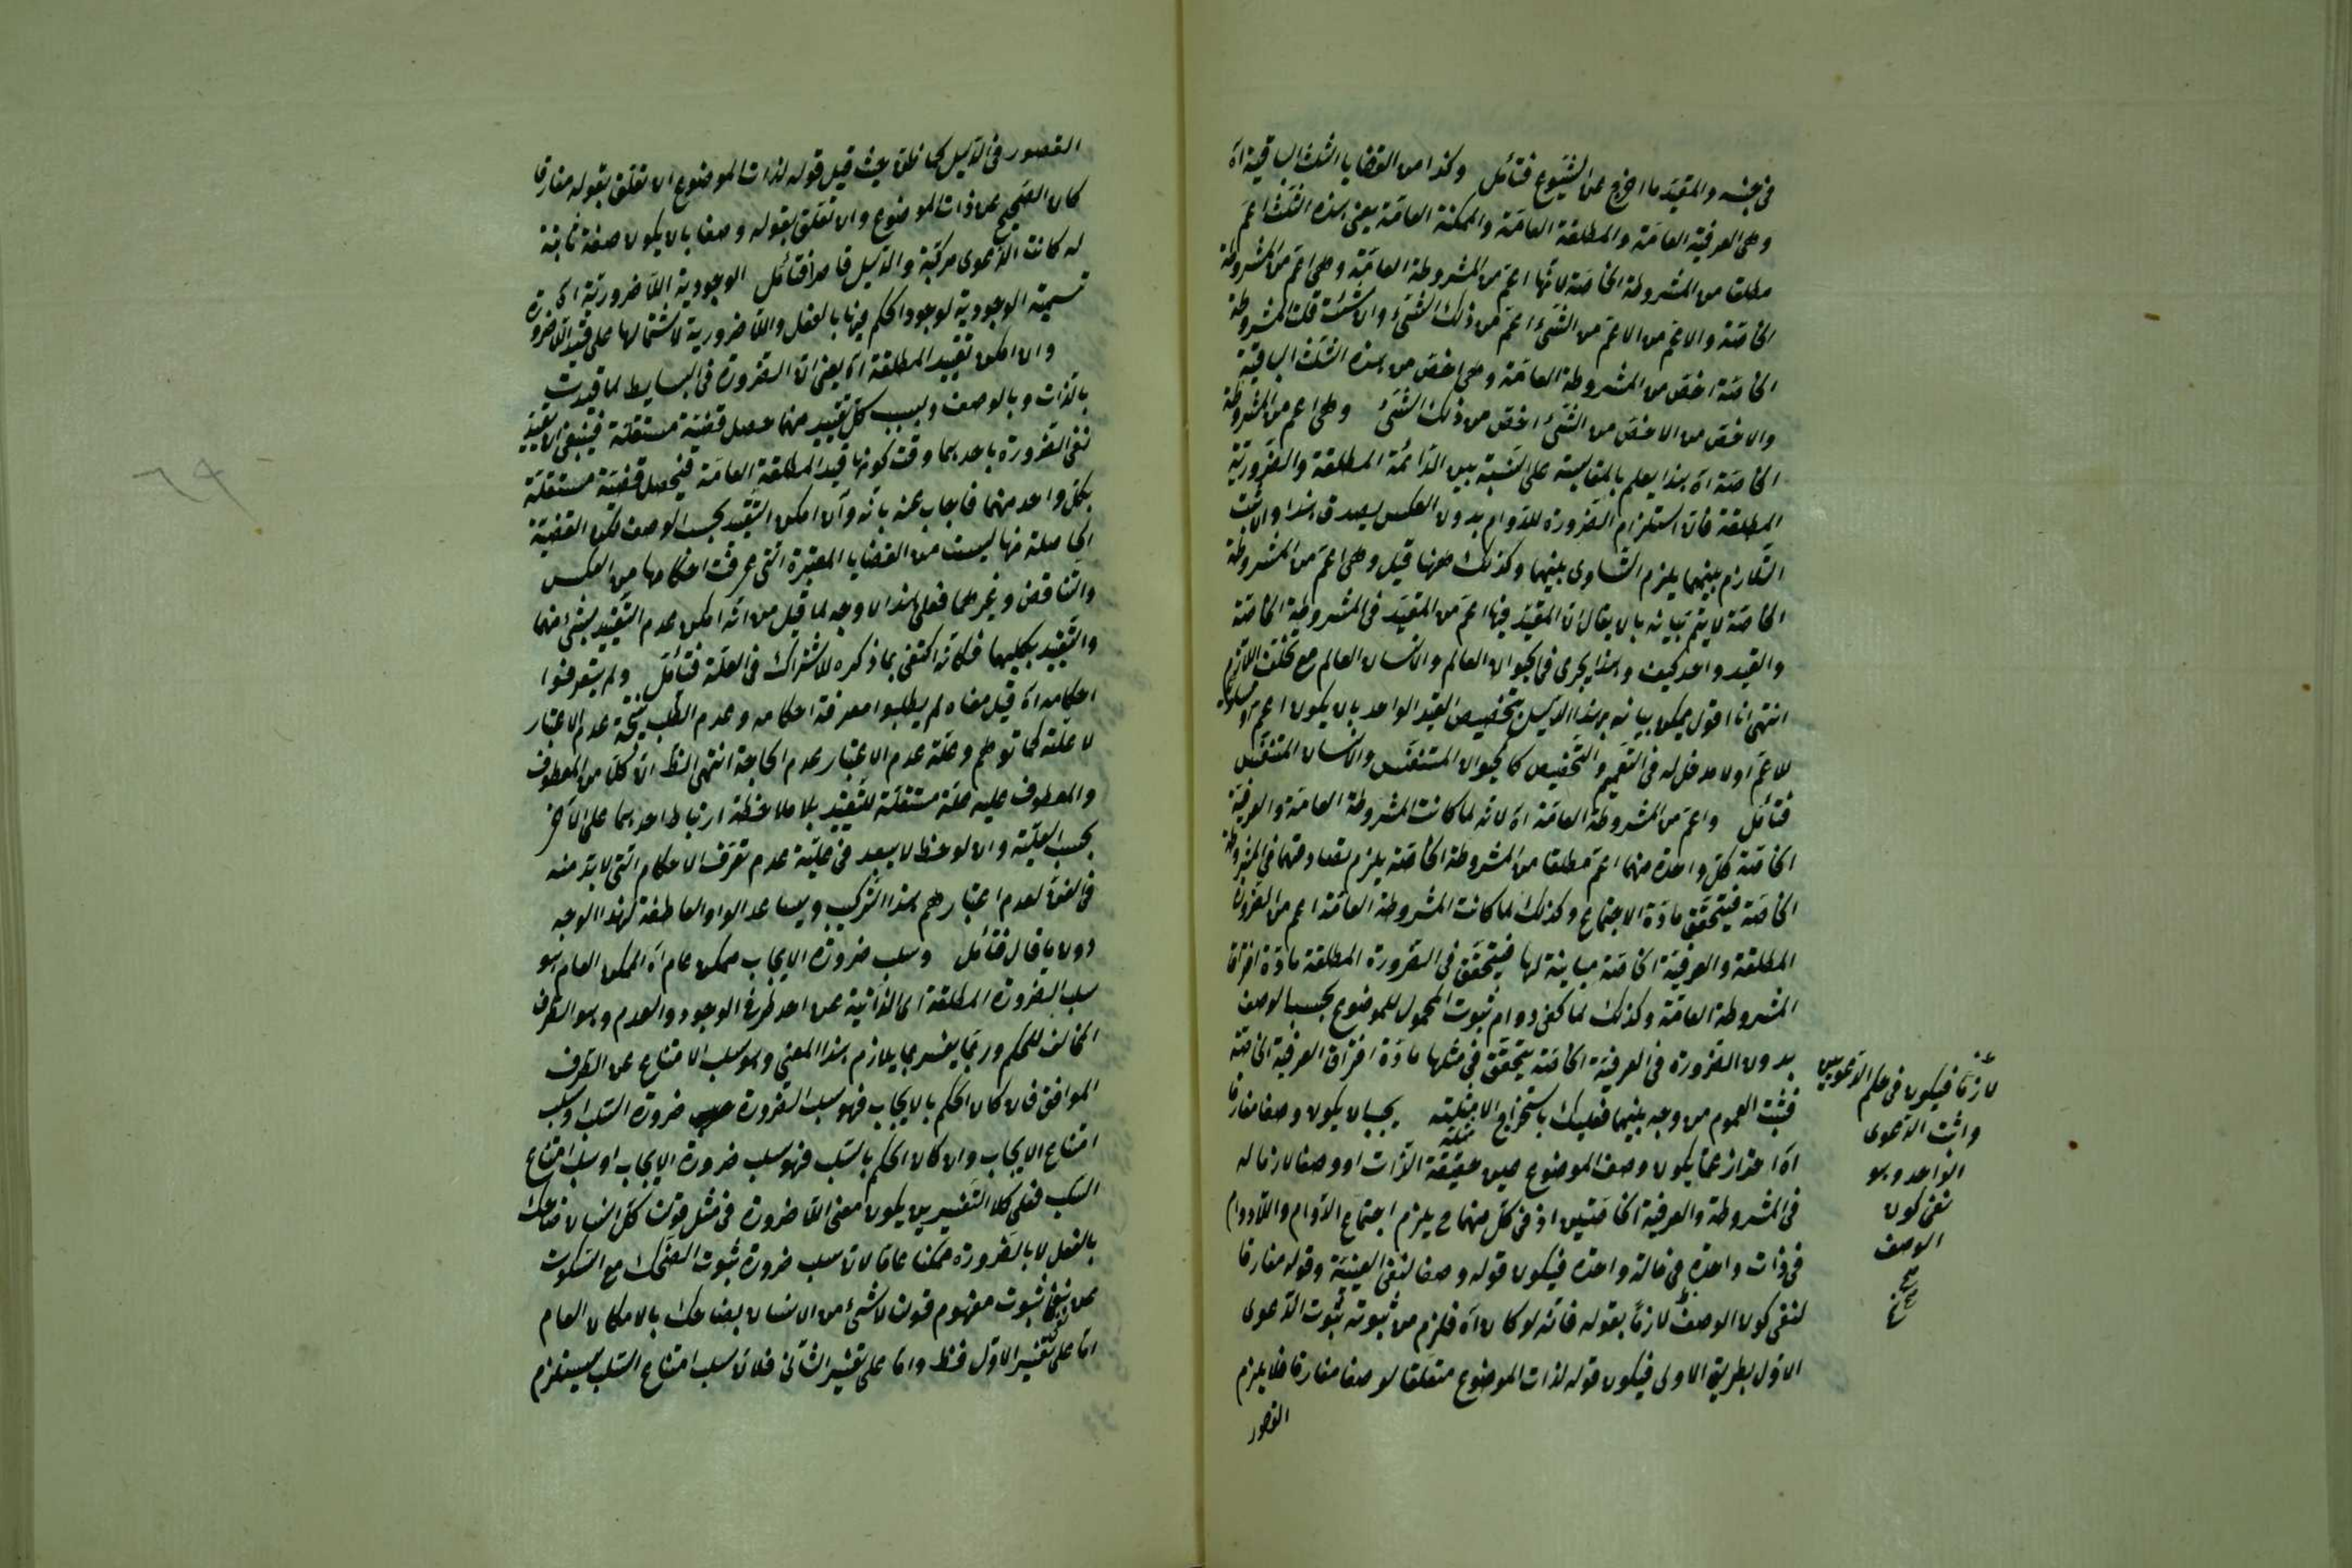 في جنسه والمقيد ما اخرج عن الشيوع فتأمل وكذا من القضايا الثلث الباقية اه
وهى العرفية العامة والمطلقة العامة والممكنة العامة يعنى هذه الثلث اعم
مطلقا من المشروطة الخاصة لانها اعم من المشروطة العامة وهى اعم من المشروطة
الخاصة والاعم من الاعم من الشئ اعم من ذلك الشئ وان شئت قلت المشروطة
الخاصة اخص من المشروطة العامة وهى اخص من هذه الثلث الباقية
والاخص من الاخص من الشئ اخص من ذلك الشئ وهى اعم من المشروطة
الخاصة اه هذا يعلم بالمقايسة على النسبة بين الدائمة المطلقة والضرورية
المطلقة فان استلزام الضرورة للدوام بدون العكس يصدق هذا وان ثبت
التلازم بينهما يلزم التساوى بينهما وكذلك ههنا قيل وهى اعم من المشروطة
الخاصة لا يتم بيانه بان يقال ان المقيد فيها اعم من المقيد فى المشروطة الخاصة
والقيد واحد كيف وهذا يجرى فى الحيوان العالم والانسان العالم مع تخلف اللازم
انتهى انا اقول يمكن بيانه بهذا الدليل بتخصيص القيد الواحد بان يكون اعم او مساويا
للاعم اولا مدخل له فى التعميم والتخصيص كالحيوان المتنفس والانسان المتنفس
فتأمل واعم من المشروطة العامة اه لانه لما كانت المشروطة العامة والعرفية
الخاصة كل واحدة منهما اعم مطلقا من المشروطة الخاصة يلزم تصادقهما فى المشروطة
الخاصة فيتحقق مادة الاجتماع وكذلك لما كانت المشروطة العامة اعم من الضرورة
المطلقة والعرفية الخاصة مباينة لها فيتحقق فى الضرورة المطلقة مادة افتراق
المشروطة العامة وكذلك لما كفى دوام ثبوت المحمول للموضوع بحسب الوصف
بدون الضرورة فى العرفية الخاصة يتحقق فى مثلها مادة افتراق العرفية الخاصة
فثبت العموم من وجه بينهما فعليك باستخراج الامثلة يجب ان يكون وصفا مفارقا
اه احتراز عما يكون وصف الموضوع عين حقيقة الذات او وصفا لازما له
فى المشروطة والعرفية الخاصتين اذ فى كل منهما ح يلزم اجتماع الدوام واللادوام
فى ذات واحدة فى حالة واحدة فيكون قوله وصفا لنفى العينية وقوله مفارقا
لنفى كون الوصف لازما بقوله فانه لو كان اه فلزم من ثبوته ثبوت الدعوى
الاول بطريق الاولى فيكون قوله لذات الموضوع متعلقا لوصفا مفارقا فلا يلزم
القصور
لازما فيكون فى حكم الدعويين
واثبت الدعوى
الواحد وهو
نفى كون
الوصف
القصور فى الدليل كما ظن حيث قيل قوله لذات الموضوع ان تعلق بقوله مفارقا
كان الصحيح عن ذات الموضوع وان تعلق بقوله وصفا بان يكون صفة ثابتة
له كانت الدعوى مركبة والدليل قاصرا فتأمل الوجودية اللاضرورية اه
تسمية الوجودية لوجود الحكم فيها بالفعل واللاضرورية لاشتمالها على قيد اللاضرورة
وان امكن تقييد المطلقة اه يعنى ان الضرورة فى البسايط لما قيدت
بالذات وبالوصف وبسبب كل تقييد منهما حصل قضية مستقلة فينبغى ان يقيد
نفى الضرورة باحدهما وقت كونها قيد المطلقة العامة فيحصل قضية مستقلة
بكل واحد منهما فاجاب عنه بانه وان امكن التقييد بحسب الوصف لكن القضية
الحاصلة منها ليست من القضايا المعتبرة التى عرفت احكامها من العكس
والتناقض وغيرهما فعلى هذا لا وجه لما قيل من انه امكن عدم التقييد بشئ منهما
والتقييد بكليهما فكانه اكتفى بما ذكره للاشتراك فى العلة فتأمل ولم يتعرضوا
احكامه اه قيل معناه لم يطلبوا معرفة احكامه وعدم الطلب نتيجة عدم الاعتبار
لا علته كما توهم وعلة عدم الاعتبار عدم الحاجة انتهى الظ ان كلا من المعطوف
والمعطوف عليه علة مستقلة للتقييد بلا ملاحظة ارتباط احدهما على الاخر
بحسب العلية وان لوحظ لا يبعد فى علية عدم تعرف الاحكام التى لا بد منه
فى الفن لعدم اعتبارهم هذا التركيب ويساعد الواو العاطفة لهذا الوجه
دون ما قال فتأمل وسلب ضرورة الايجاب ممكن عام اه الممكن العام هو
سلب الضرورة المطلقة اى الذاتية عن احد طرفى الوجود والعدم وهو الطرف
المخالف للحكم وربما يفسر بما يلازم هذا المعنى وهو سلب الامتناع عن الطرف
الموافق فان كان الحكم بالايجاب فهو سلب الضرورة ضرورة السلب او سلب
امتناع الايجاب وان كان الحكم بالسلب فهو سلب ضرورة الايجاب او سلب امتناع
السلب فعلى كلا التفسيرين يكون معنى اللاضرورة فى مثل قولنا كل انسان ضاحك
بالفعل لا بالضرورة ممكنا عاما لان سلب ضرورة ثبوت الضحك مع السكوت
عن ثبوت مفهوم قولنا لا شئ من الانسان بضاحك بالامكان العام
اما على تفسير الاول فظ واما على تفسير الثانى فلان سلب امتناع السلب يستلزم